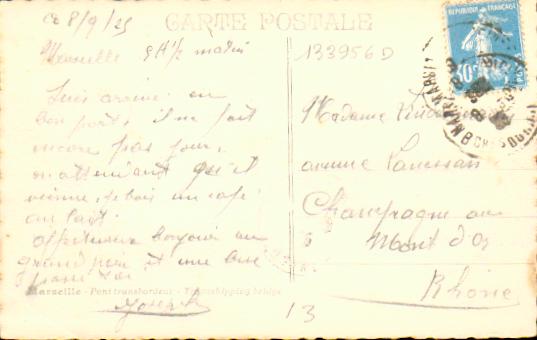 CARTE POSTALE
Ce 8/9/25
Marseille 5 H 1/2 matin
133956D
Suis arrivé au
bon port, il ne fait
encore pas jour,
en attendant qu'il
vienne, je bois un café
au lait.
bonjour au
grand père et une
Joseph
Marseille - Pont transbordeur - Transhipping bridge
Madame
avenue
Champagne au
Mont d'Or
Rhône
13
REPUBLIQUE FRANÇAISE
30
POSTES